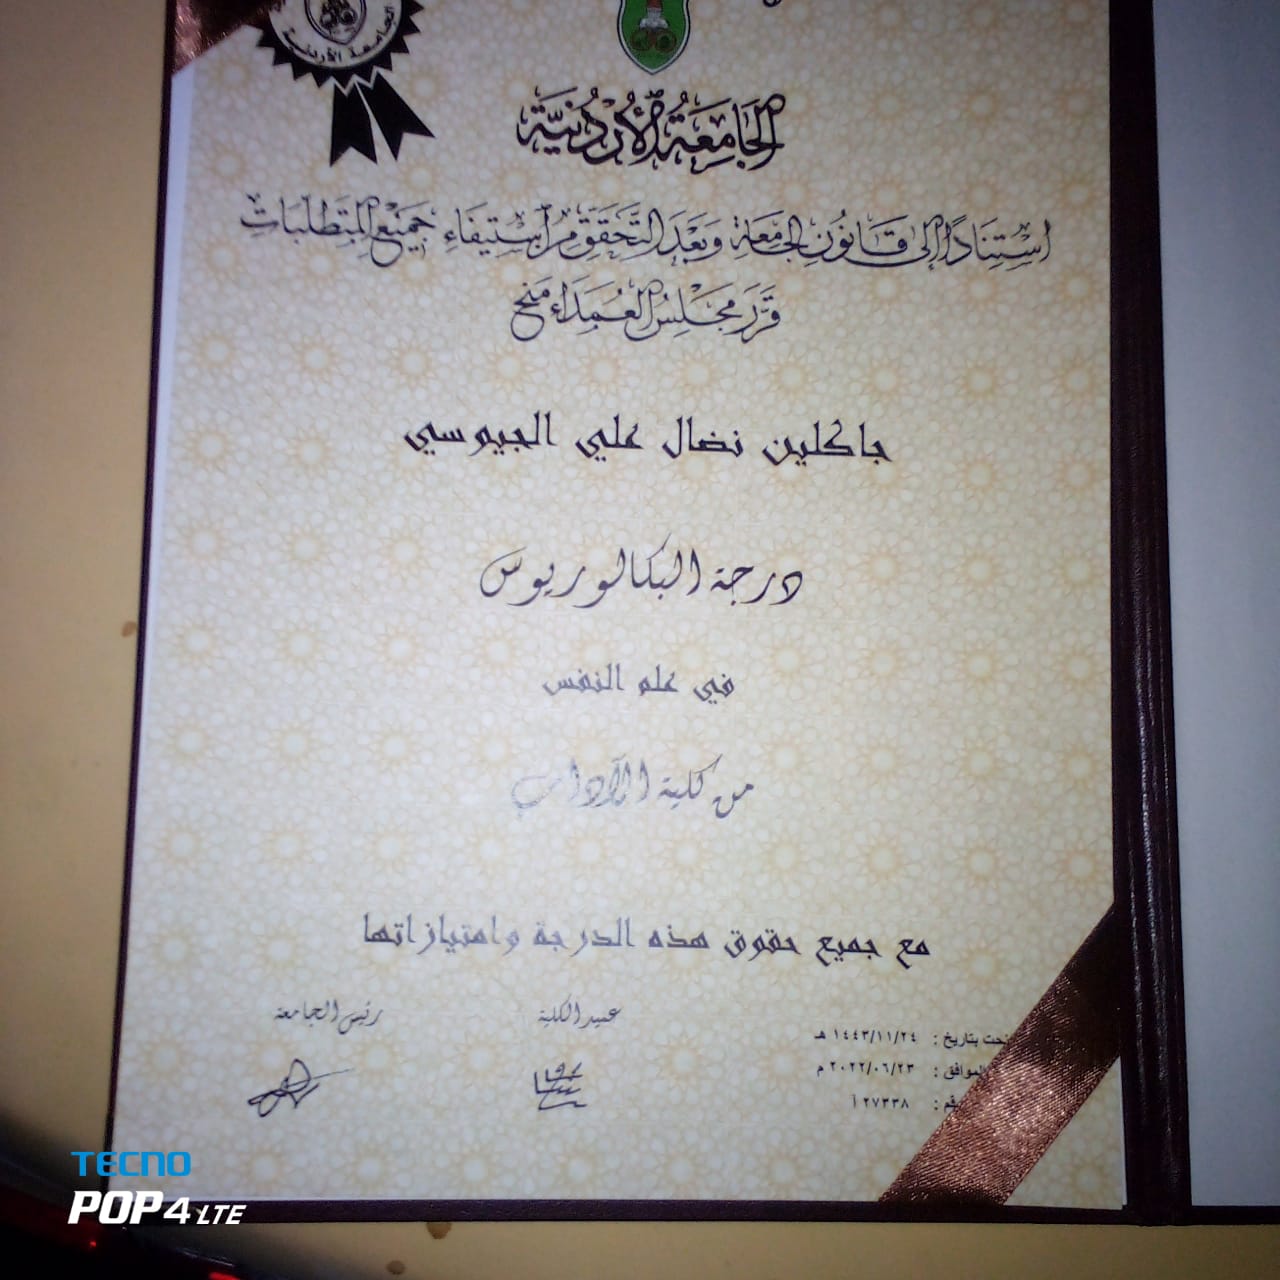 الجامعة الأردنية
الجَامِعَةُ الأُرْدُنِيَّة
استنادًا إلى قانون الجامعة وبعد التحقق من استيفاء جميع المتطلبات
قرر مجلس العمداء منح
جاكلين نضال علي الجيوسي
درجة البكالوريوس
في علم النفس
من كلية الآداب
مع جميع حقوق هذه الدرجة وامتيازاتها
عميد الكلية
رئيس الجامعة
بتاريخ : ١٤٤٣/١١/٢٤ هـ
الموافق : ٢٠٢٢/٠٦/٢٣ م
: ٢٧٣٣٨ أ
TECNO
POP 4 LTE